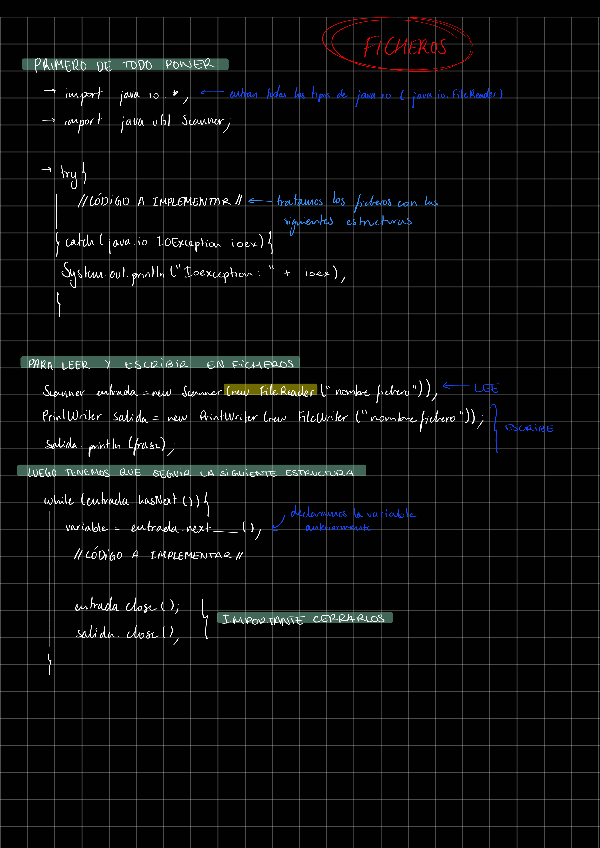 FICHEROS
PRIMERO DE TODO PONER
→ import java.io.*; ← entran todos los tipos de java.io (java.io.FileReader)
→ import java.util.Scanner;
→ try{
//CÓDIGO A IMPLEMENTAR// ← tratamos los ficheros con las
siguientes estructuras
} catch (java.io.IOException ioex){
System.out.println("Ioexception: " + ioex);
}
PARA LEER Y ESCRIBIR EN FICHEROS
Scanner entrada = new Scanner (new FileReader ("nombre fichero")); ← LEE
PrintWriter salida = new PrintWriter (new FileWriter ("nombre fichero"));
ESCRIBE
salida.println (frase);
LUEGO TENEMOS QUE SEGUIR LA SIGUIENTE ESTRUCTURA
while (entrada.hasNext()){
variable = entrada.next___(); ← declaramos la variable
anteriormente
//CÓDIGO A IMPLEMENTAR//
entrada.close();
IMPORTANTE CERRARLOS
salida.close();
}